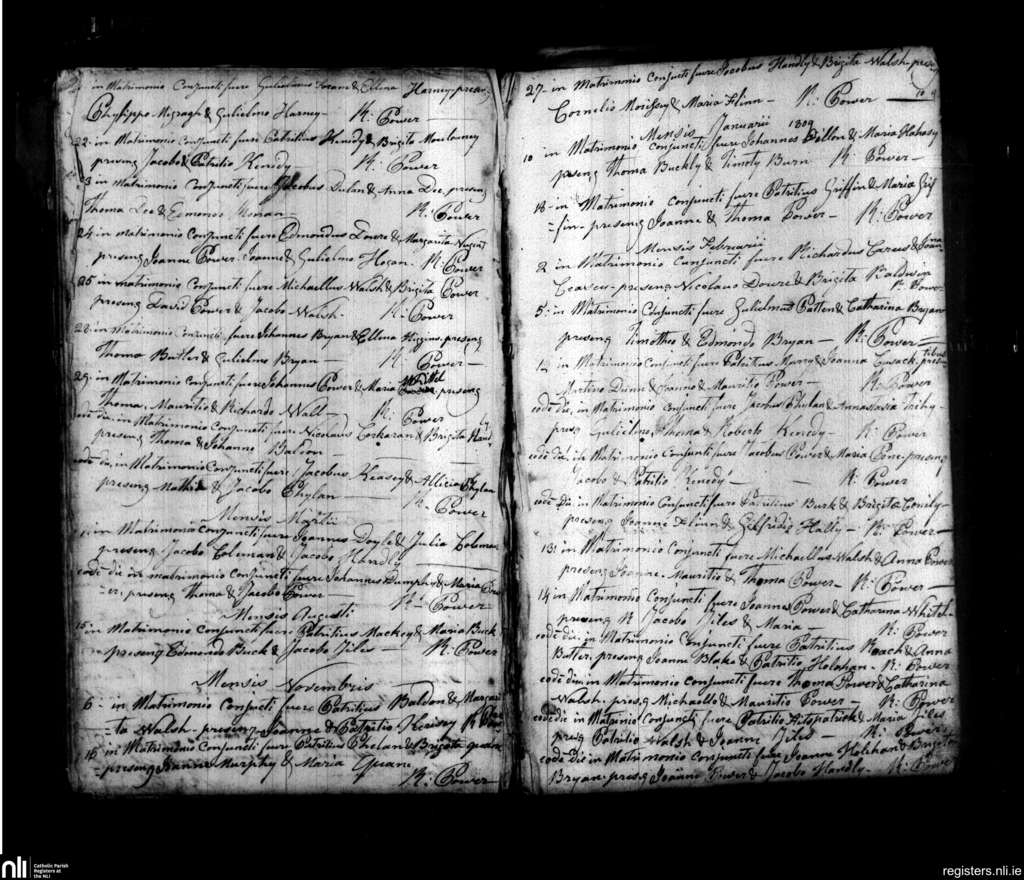 in Matrimonio Conjuncti fuere Gulielmus & Ellena Harney
Phylippo Megragh & Gulielmo Harney - R: Power
22 in Matrimonio Conjuncti fuere Patritius Kenedy & Brigita
Jacobo & Patritio Kenedy R: Power
23 in Matrimonio Conjuncti fuere Jacobus & Anna Doe, presens
Thoma Doe & Edmondo R: Power
24 in Matrimonio Conjuncti fuere Edmondus & Margarita Nugent
presens Joanne Power, Joanne & Gulielmo Hogan - R: Power
25 in Matrimonio Conjuncti fuere Michaellus Walsh & Brigita Power
presens David Power & Jacobo Walsh - R: Power
28 in Matrimonio Conjuncti fuere Johannes Bryan & Ellena Higgins, presens
Thoma Butler & Gulielmo Bryan - R: Power
29 in Matrimonio Conjuncti fuere Johannes Power & Maria presens
Thoma, Mauritio & Richardo Wall - R: Power
eode die in Matrimonio Conjuncti fuere Nicolaus Corkaran & Brigita
presens Thoma & Johanne Baldon -
eode die, in Matrimonio Conjuncti fuere Jacobus Keasey & Allicia Phylan
presens & Jacobo Phylan - R: Power
Mensis Martii
1 in Matrimonio Conjuncti fuere Joannes Doyle & Julia Colman
presens Jacobo Colman & Jacobo Handly
eode die in matrimonio Conjuncti fuere Johannes Dumphy & Maria
presens Thoma & Jacobo Power - R: Power
Mensis Augusti
15 in Matrimonio Conjuncti fuere Patritius Mackey & Maria Buck
presens Edmondo Buck & Jacobo Jiles - R: Power
Mensis Novembris
6 in Matrimonio Conjuncti fuere Patritius Baldon & Margari
ta Walsh - presens Joanne & Patritio R: Power
16 in Matrimonio Conjuncti fuere Patritius Phelan & Brigita Quane
presens Joanne Murphy & Maria Quane
R: Power
27 in Matrimonio Conjuncti fuere Jacobus Handly & Brigita Walsh - presens
Cornelio Morissey & Maria Flinn - R: Power
Mensis Januarii 1809
10 in Matrimonio Conjuncti fuere Johannes Dillon & Maria Flahasy
presens Thoma Buckly & Timoty Burn R: Power -
18 in Matrimonio Conjuncti fuere Patritius Griffin & Maria Grif
fin - presens Joanne & Thoma Power - R: Power
Mensis Februarii
2 in Matrimonio Conjuncti fuere Richardus Carew & Joanna
presens Nicolaus Dowre & Brigita Baldwin R: Power
5 in Matrimonio Conjuncti fuere Gulielmus Patten & Catharina Bryan
presens Timotheo & Edmondo Bryan - R: Power -
12 in Matrimonio Conjuncti fuere Patritius & Joanna Cusack
Dunn & Joanne & Mauritio Power - R: Power
eode die, in Matrimonio Conjuncti fuere Jacobus Phylan & Annastatia
presens Gulielmo, Thoma & Roberto Kenedy - R: Power
eode die, in Matrimonio Conjuncti fuere Jacobus Power & Maria presens
Jacobo & Patritio Kenedy - R: Power
eode die in Matrimonio Conjuncti fuere Patritius Burk & Brigita
presens Joanne Flinn & R: Power -
13 in Matrimonio Conjuncti fuere Michaellus Walsh & Anna Power
presens Joanne, Mauritio & Thoma Power - R: Power
14 in Matrimonio Conjuncti fuere Joannes Power & Catharina
presens Jacobo Jiles & Maria - R: Power
eode die in Matrimonio Conjuncti fuere Patritius Roach & Anna
Butler, presens Joanne Blake & Patritio Holahan - R: Power
eode die in Matrimonio Conjuncti fuere Thoma Power & Catharina
Walsh - presens Michaello & Mauritio Power - R: Power
eode die in Matrimonio Conjuncti fuere Patritio Fitspatrick & Maria Jiles
presens Patritio Walsh & Joanne Jiles - R: Power
eode die in Matrimonio Conjuncti fuere Joannes Holihan & Brigita
Bryan - presens Joanne Power & Jacobo Handly - R: Power
nli
Catholic Parish
Registers at
the NLI
registers.nli.ie